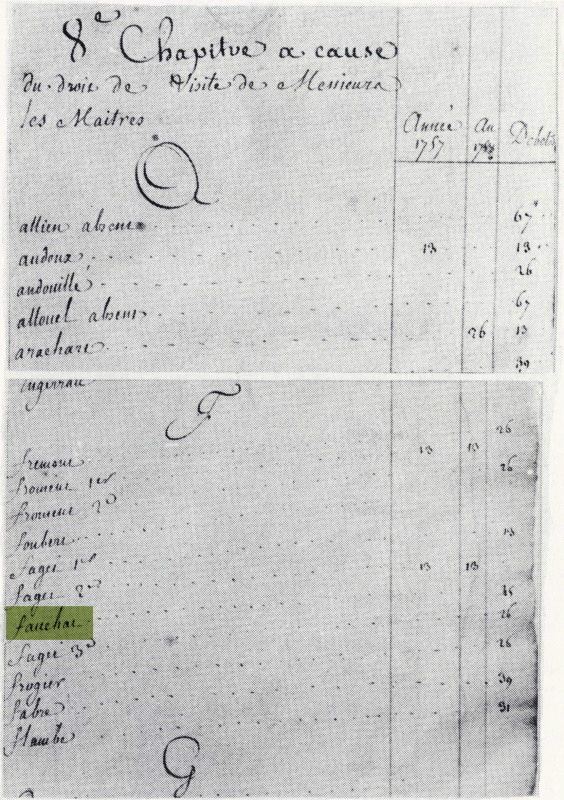 8e Chapitre a cause
du droit de Visite de Messieurs
les Maitres
Année 1757
An
Debets
A
allien absent 67
audoux 13 13
andouillé 26
allouel absent 67
arachart 26 13
39
F
26
fremont 13 13
froment 1er 26
froment 2d
foubert 13
fages 1er 13 13
fages 2d
fauchar 26
fages 3e 26
frogier 39
fabre 31
flambe
G